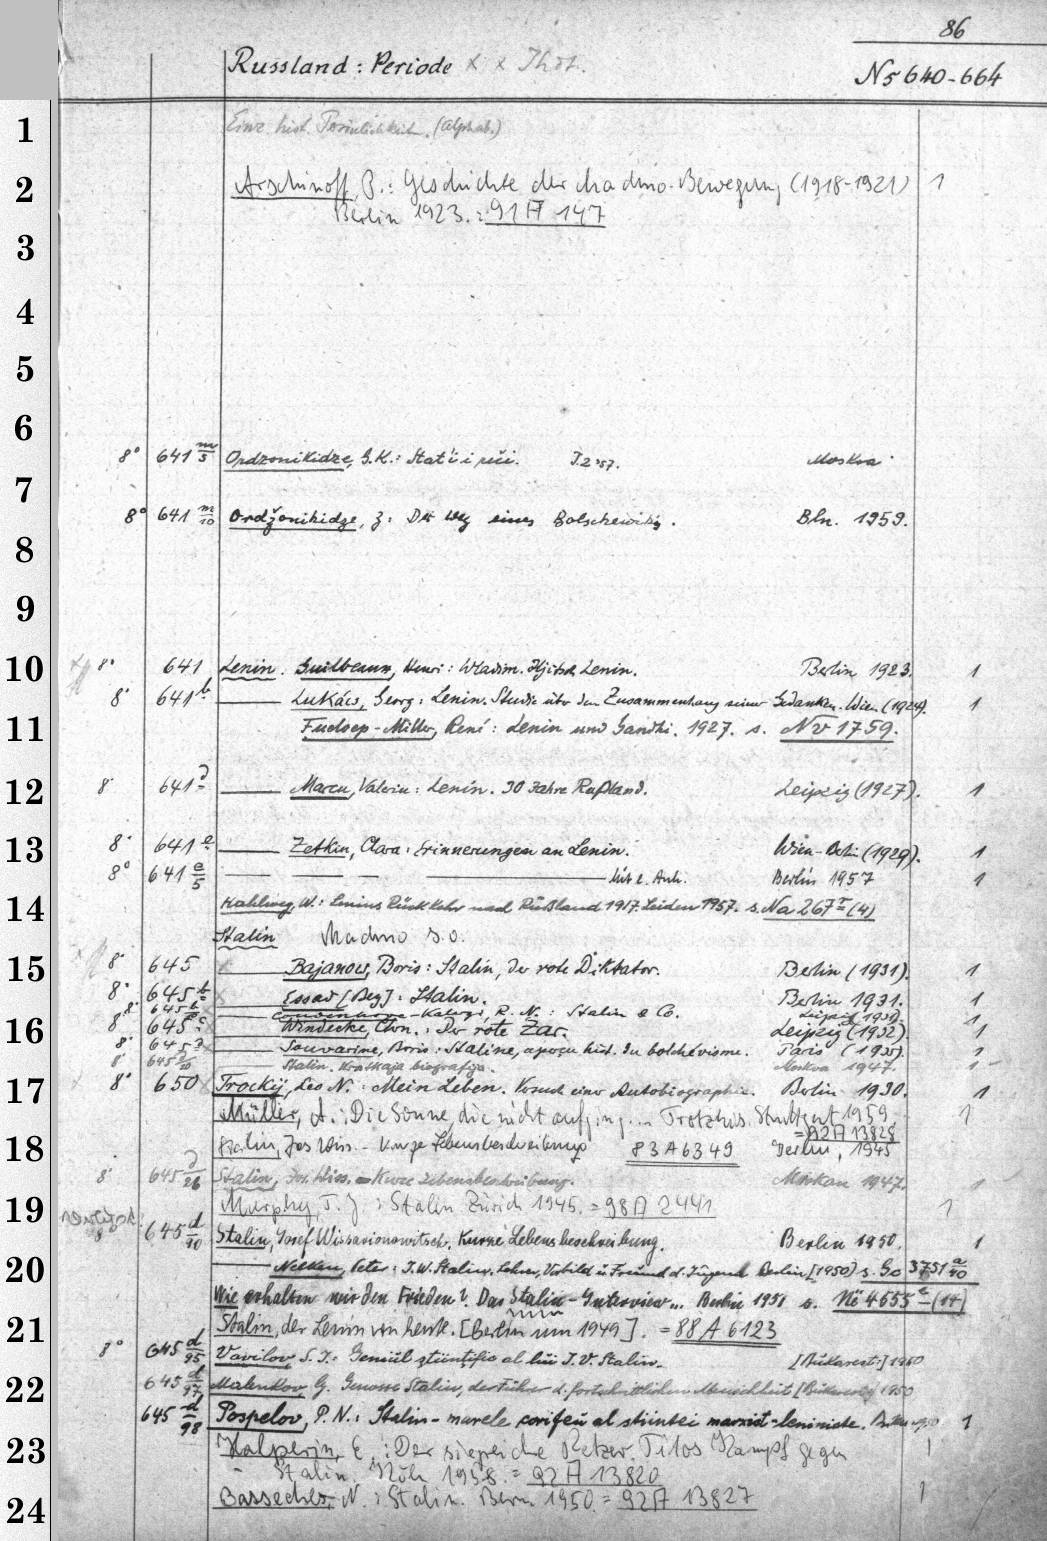 86
Russland: Periode x x Thot.
Ns 640-664
1
Einz. hist. Persönlichkeit. (alphab.)
2 Arschinoff, P.: Geschichte der Machno-Bewegung (1918-1921) 1
Berlin 1923. = 91 A 147
3
4
5
6
8° 641 m/5 Ordzonikidze, G.K.: Stat'i i reči. T.2 '57. Moskva
7
8° 641 m/10 Ordžonikidze, Z: Der Weg eines Bolschewiks. Bln. 1959.
8
9
10 8° 641 Lenin. Guilbeaux, Henri: Wladim. Iljitsch Lenin. Berlin 1923. 1
8° 641 b Lukács, Georg: Lenin. Studie über den Zusammenhang seiner Gedanken. Wien (1924). 1
11 Fueloep-Miller, René: Lenin und Gandhi. 1927. s. Nv 1759.
12 8° 641 d Marcu, Valeriu: Lenin. 30 Jahre Rußland. Leipzig (1927). 1
13 8° 641 e Zetkin, Clara: Erinnerungen an Lenin. Wien-Berlin (1929). 1
8° 641 e/5 Mit e. Anh. Berlin 1957 1
14 Hahlweg, W.: Lenins Rückkehr nach Rußland 1917. Leiden 1957. s. Na 267 (4)
Stalin Machno s.o.
15 8° 645 Bajanow, Boris: Stalin, der rote Diktator. Berlin (1931). 1
8° 645 b Essad [Beg]: Stalin. Berlin 1931. 1
8° 645 Coudenhove-Kalergi, R. N.: Stalin & Co. Leipzig (1931). 1
16 8° 645 c Windecke, Chn.: Der rote Zar. Leipzig (1932). 1
8° 645 d Souvarine, Boris: Staline, aperçu hist. du bolchévisme. Paris (1935). 1
8° 645 d/20 Stalin. Kratkaja biografija. Moskva 1947. 1
17 8° 650 Trockij, Leo N.: Mein Leben. Versuch einer Autobiographie. Berlin 1930. 1
Müller, A.: Die Sonne, die nicht aufging... Trotzkis Stuttgart 1959. 1
= 92 A 13828
18 Stalin, Jos. Wiss. - Kurze Lebensbeschreibung 83 A 6349 Berlin, 1945
8° 645 d/26 Stalin, Jos. Wiss. - Kurze Lebensbeschreibung. Moskau 1947. 1
19 Murphy, J. J.: Stalin Zürich 1945. = 98 A 2441 1
8° 645 d/30 Stalin, Josef Wissarionowitsch. Kurze Lebensbeschreibung. Berlin 1950. 1
20 Nelken, Peter: J.W. Stalin. Lehrer, Vorbild u. Freund d. Jugend Berlin [1950] s. Go 3751 a/40
Wie erhalten wir den Frieden? Das Stalin-Interview... Berlin 1951 s. Nö 4655 c (14)
21 Stalin, der Lenin von heute. [Berlin um 1949]. = 88 A 6123
8° 645 d/95 Vavilov, S. I.: Geniul ştiinţific al lui I. V. Stalin. [Bukarest:] 1950
22 645 d/97 Malenkov, G. Genosse Stalin, der Führer d. fortschrittlichen Menschheit [Bukarest] 1950
645 d/98 Pospelov, P. N.: Stalin - marele corifeu al stiintei marxist-leniniste. 1
23 Halperin, E.: Der siegreiche Ketzer. Titos Kampf gegen 1
Stalin. Köln 1958. = 92 A 13820
24 Basseches, N.: Stalin. Bern 1950. = 92 A 13827 1